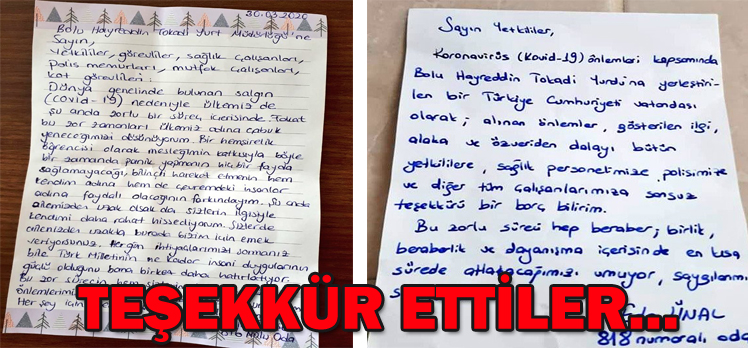 30.03.2020
Bolu Hayreddin Tokadi Yurt Müdürlüğü'ne
Sayın,
Yetkililer, görevliler, sağlık çalışanları,
Polis memurları, mutfak çalışanları,
kat görevlileri.
Dünya genelinde bulunan salgın
(Covid-19) nedeniyle ülkemiz de
şu anda zorlu bir süreç içerisinde. Fakat
bu zor zamanları ülkemiz adına çabuk
yeneceğimizi düşünüyorum. Bir hemşirelik
öğrencisi olarak mesleğimin katkısıyla böyle
bir zamanda panik yapmanın hiç bir fayda
sağlamayacağı, bilinçli hareket etmenin hem
kendim adına hem de çevremdeki insanlar
adına faydalı olacağının farkındayım. Şu anda
ailemizden uzak olsak da sizlerin ilgisiyle
kendimi daha rahat hissediyorum. Sizlerde
ailenizden uzakta burada bizim için emek
veriyorsunuz. Hergün ihtiyaçlarımızı sormanız
bile Türk Milletinin ne kadar insani duygularının
güçlü olduğunu bana birkez daha hatırlatıyor.
Bu zor sürecin hem
önlemlerimizi
Her şey için
Nolu Oda
Sayın Yetkililer,
Koronavirüs (Kovid-19) önlemleri kapsamında
Bolu Hayreddin Tokadi Yurdu'na yerleştiri-
len bir Türkiye Cumhuriyeti vatandaşı
olarak; alınan önlemler, gösterilen ilgi,
alaka ve özveriden dolayı bütün
yetkililere, sağlık personelimize, polisimize
ve diğer tüm çalışanlarımıza sonsuz
teşekkürü bir borç bilirim.
Bu zorlu süreci hep beraber; birlik,
beraberlik ve dayanışma içerisinde en kısa
sürede atlatacağımızı umuyor, saygılarımı
ÜNAL
818 numaralı oda
TEŞEKKÜR ETTİLER...